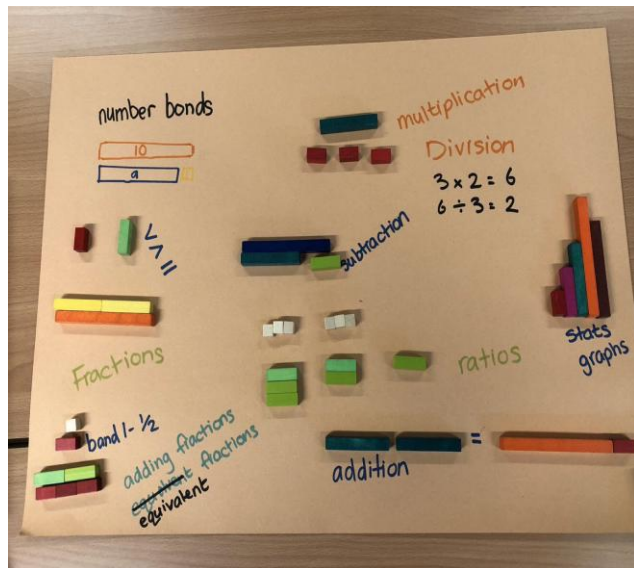 number bonds
10
9
multiplication
Division
3 x 2 = 6
6 ÷ 3 = 2
< > =
subtraction
stats
graphs
Fractions
ratios
band 1 - 1/2
adding fractions
fractions
equivalent
addition
=